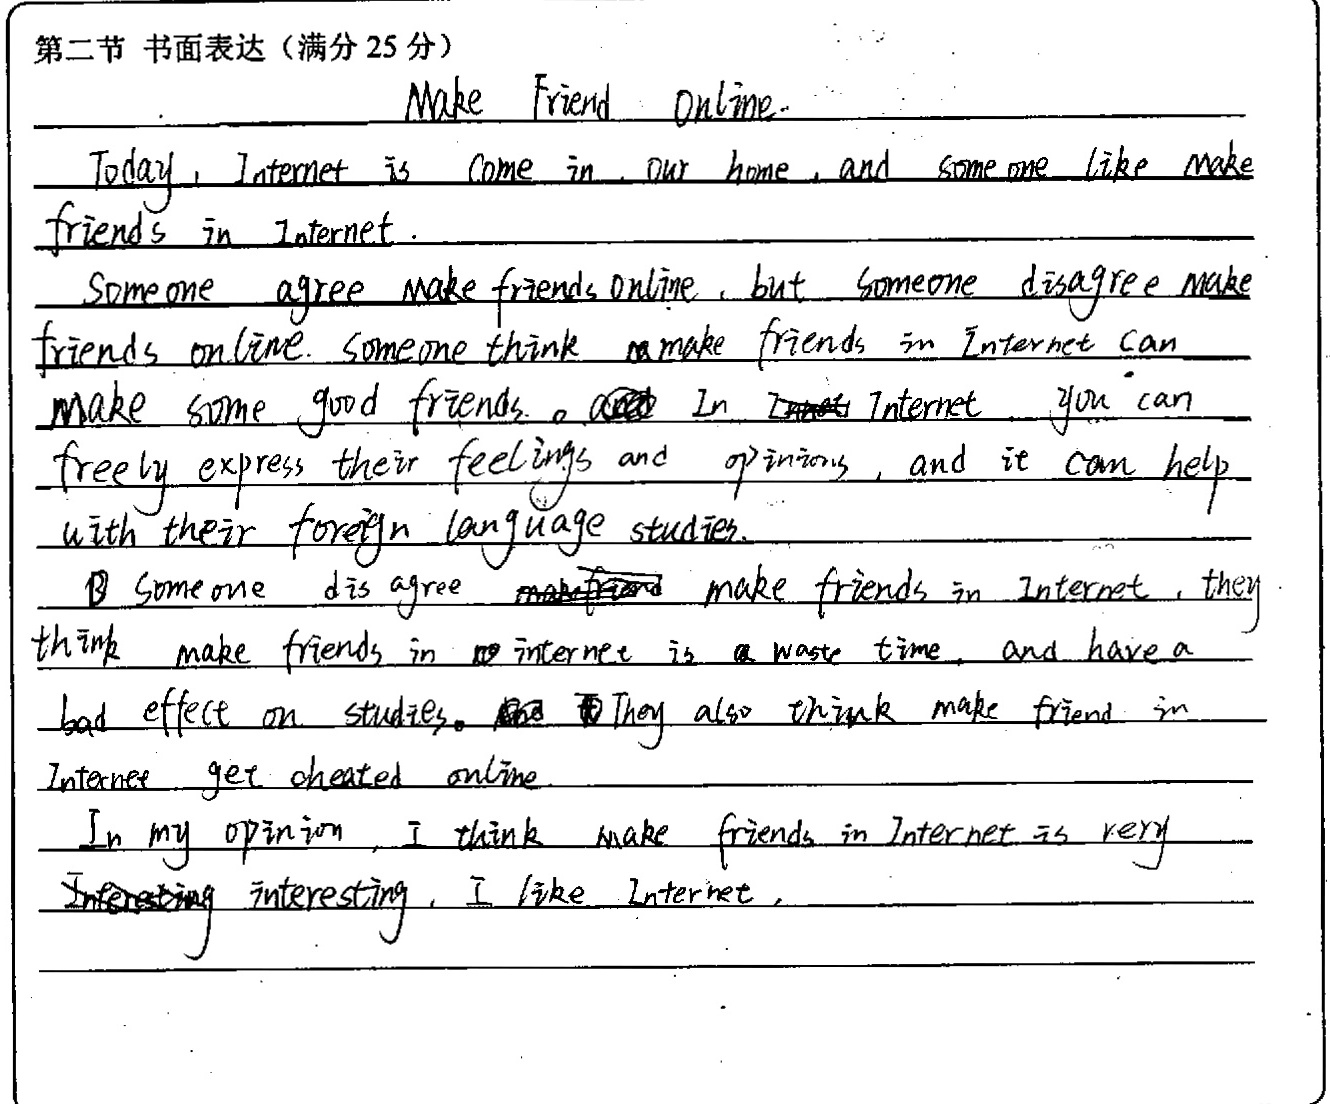 第二节 书面表达（满分 25 分）
Make Friend Online.
Today, Internet is come in our home, and someone like make
friends in Internet.
Someone agree make friends online, but someone disagree make
friends online. Someone think make friends in Internet can
make some good friends. In Internet you can
freely express their feelings and opinions, and it can help
with their foreign language studies.
Someone disagree make friends in Internet, they
think make friends in internet is a waste time, and have a
bad effect on studies. They also think make friend in
Internet get cheated online
In my opinion, I think make friends in Internet is very
interesting, I like Internet.